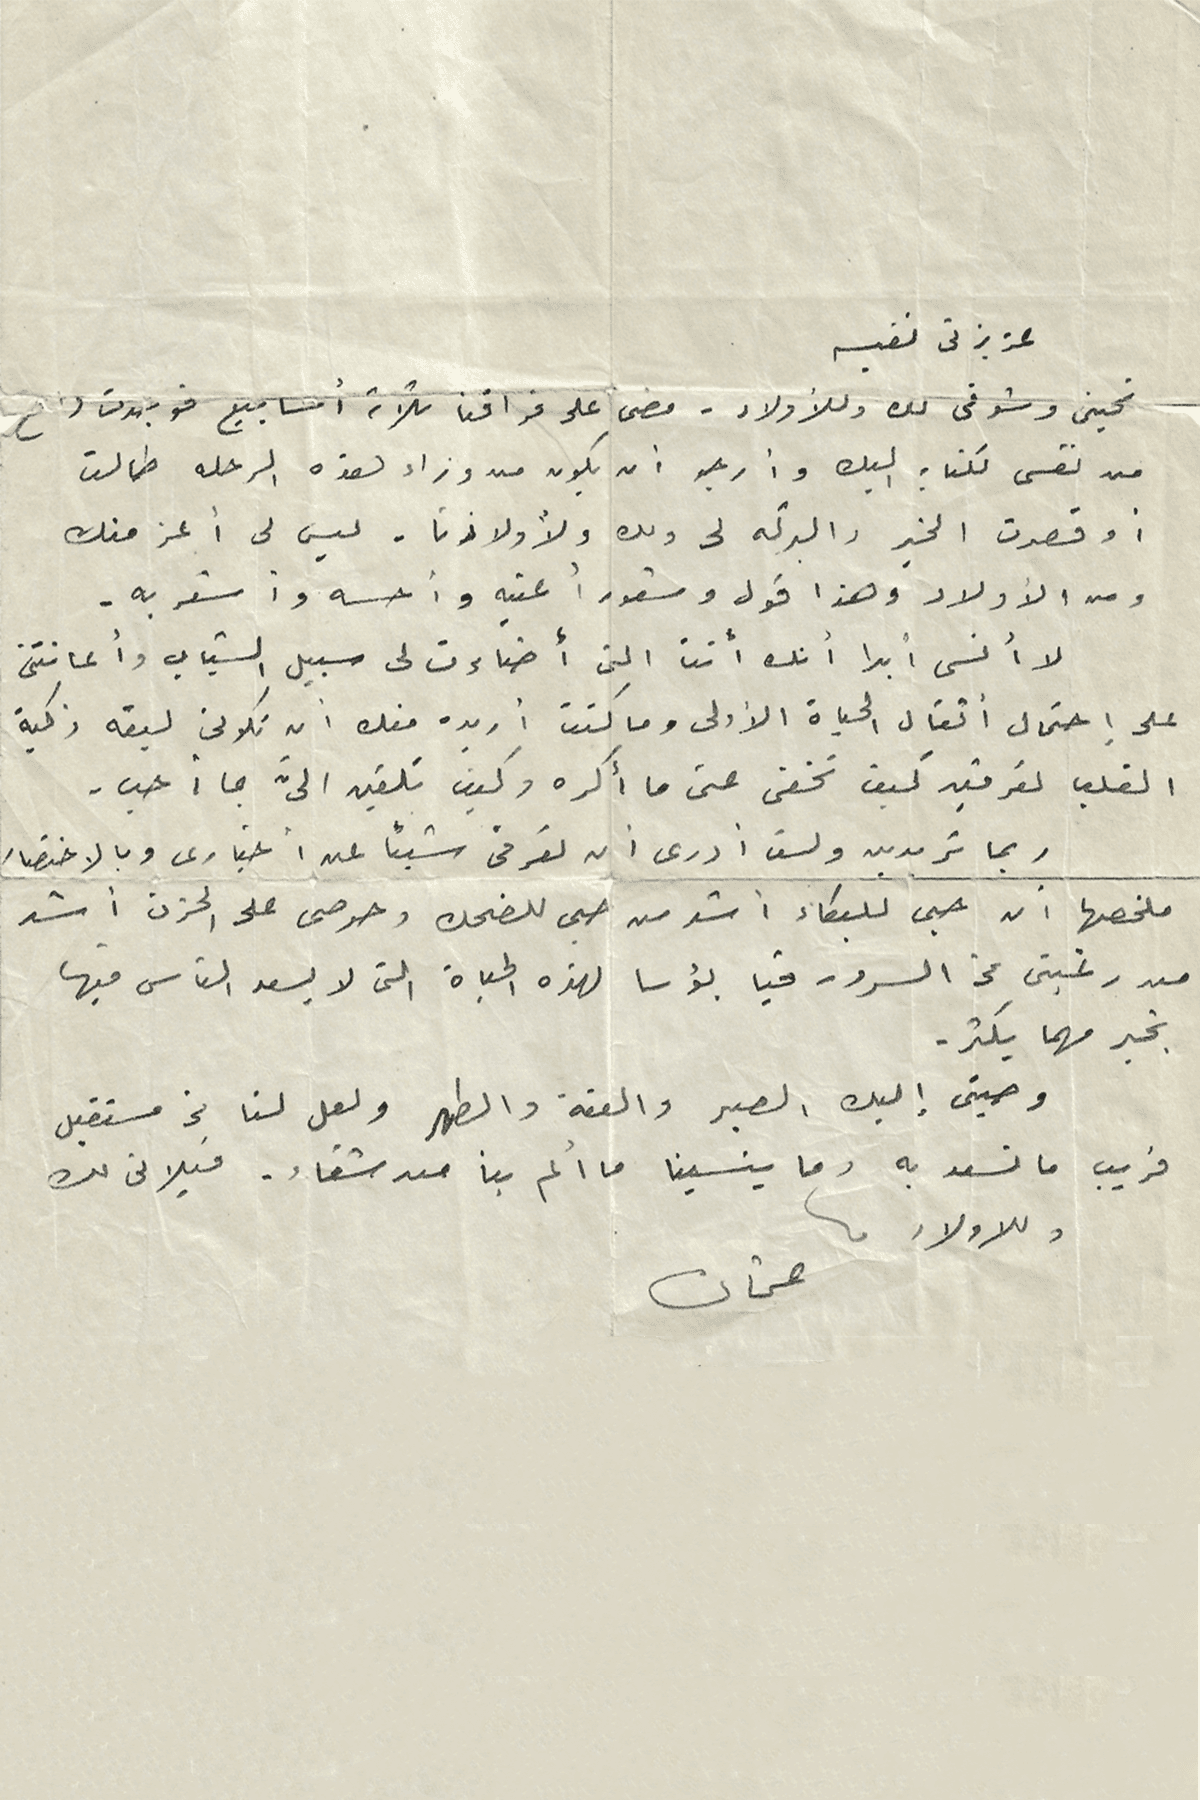 عزيزتى نفيسه
تحيتى وشوقى لك وللأولاد - مضى على فراقنا ثلاثة أسابيع فوجدت دافع
من نفسى لكتابه اليك وأرجو أن يكون من وراء هذه الرحله طالت
أو قصرت الخير والبركه لى ولك ولأولادنا - ليس لى أعز منك
ومن الأولاد وهذا قول وشعور أعنيه وأحسه وأشعر به -
لا أنسى أبدا أنك أنت التى أضاءت لى سبيل الشباب وأعانتنى
على إحتمال أثقال الحياة الأولى وما كنت أريده منك أن تكونى لبقه زكية
القلب تعرفين كيف تخفى عنى ما أكره وكيف تلقين الىّ بما أحب -
ربما تريدين ولست أدرى أن تعرفى شيئاً عن أخبارى وبالاختصار
ملخصها أن حبى للبكاء أشد من حبى للضحك وحرصى على الحزن أشد
من رغبتى فى السرور فيا بؤسا لهذه الحياة التى لا يسعد الناس فيها
بخير مهما يكثر -
وصيتى إليك الصبر والعفة والطهر ولعل لنا فى مستقبل
قريب ما نسعد به وما ينسينا ما ألم بنا من شقاء - قبلاتى لك
وللاولاد
عثمان